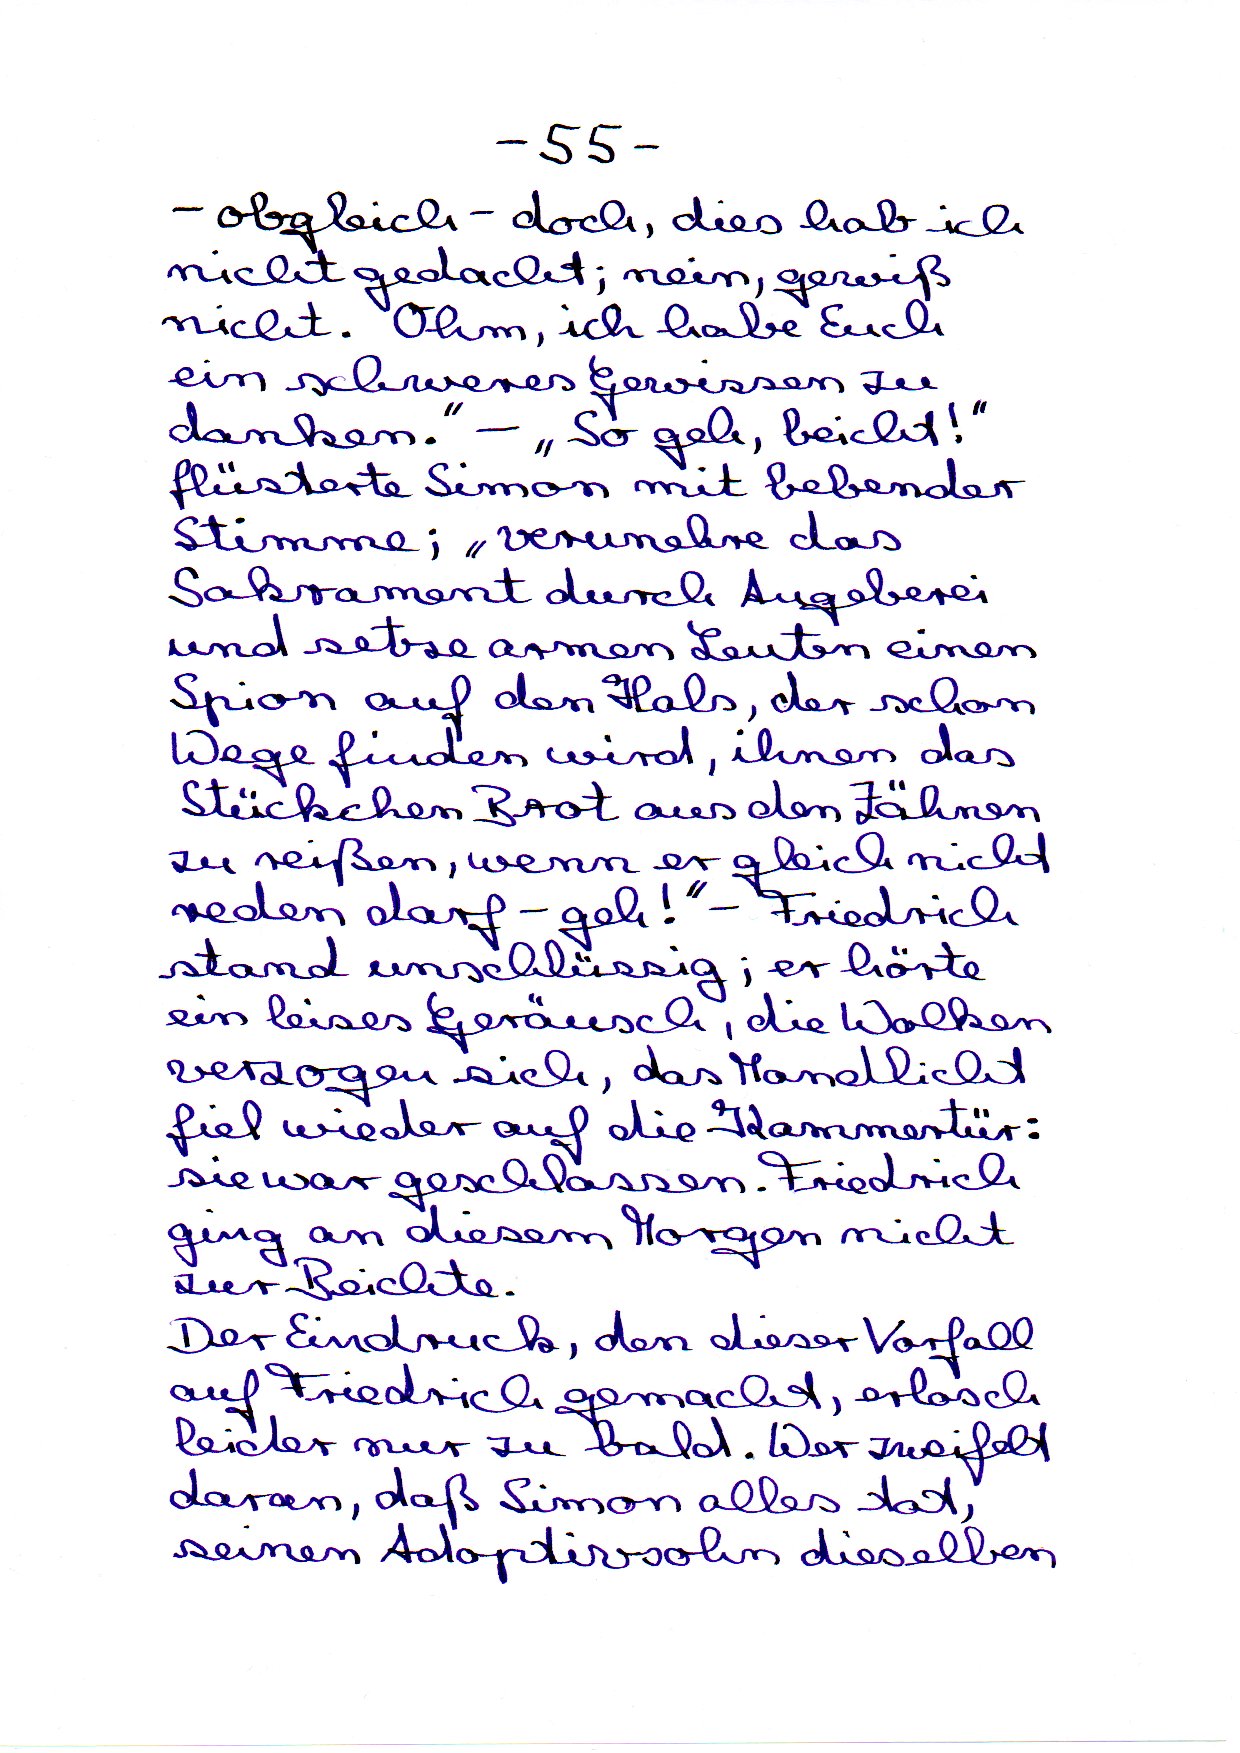 - 55 -
- obgleich - doch, dies hab ich
nicht gedacht; nein, gewiß
nicht. Ohm, ich habe Euch
ein schweres Gewissen zu
danken." - „So geh, beicht!"
flüsterte Simon mit bebender
Stimme; „verunehre das
Sakrament durch Angeberei
und setze armen Leuten einen
Spion auf den Hals, der schon
Wege finden wird, ihnen das
Stückchen Brot aus den Zähnen
zu reißen, wenn er gleich nicht
reden darf - geh!" - Friedrich
stand unschlüssig; er hörte
ein leises Geräusch, die Wolken
verzogen sich, das Mondlicht
fiel wieder auf die Kammertür:
sie war geschlossen. Friedrich
ging an diesem Morgen nicht
zur Beichte.
Der Eindruck, den dieser Vorfall
auf Friedrich gemacht, erlosch
leider nur zu bald. Wer zweifelt
daran, daß Simon alles tat,
seinen Adoptivsohn dieselben